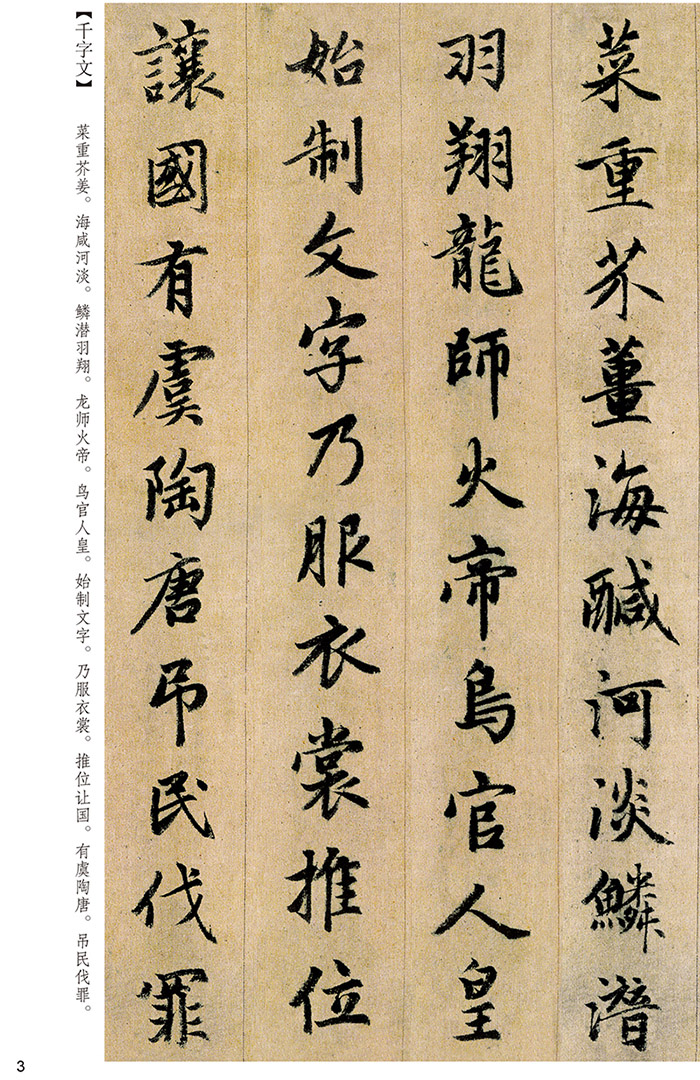 菜重芥薑海醎河淡鱗潛
羽翔龍師火帝鳥官人皇
始制文字乃服衣裳推位
讓國有虞陶唐吊民伐罪
【千字文】
菜重芥姜。海咸河淡。鳞潜羽翔。龙师火帝。鸟官人皇。始制文字。乃服衣裳。推位让国。有虞陶唐。吊民伐罪。
3